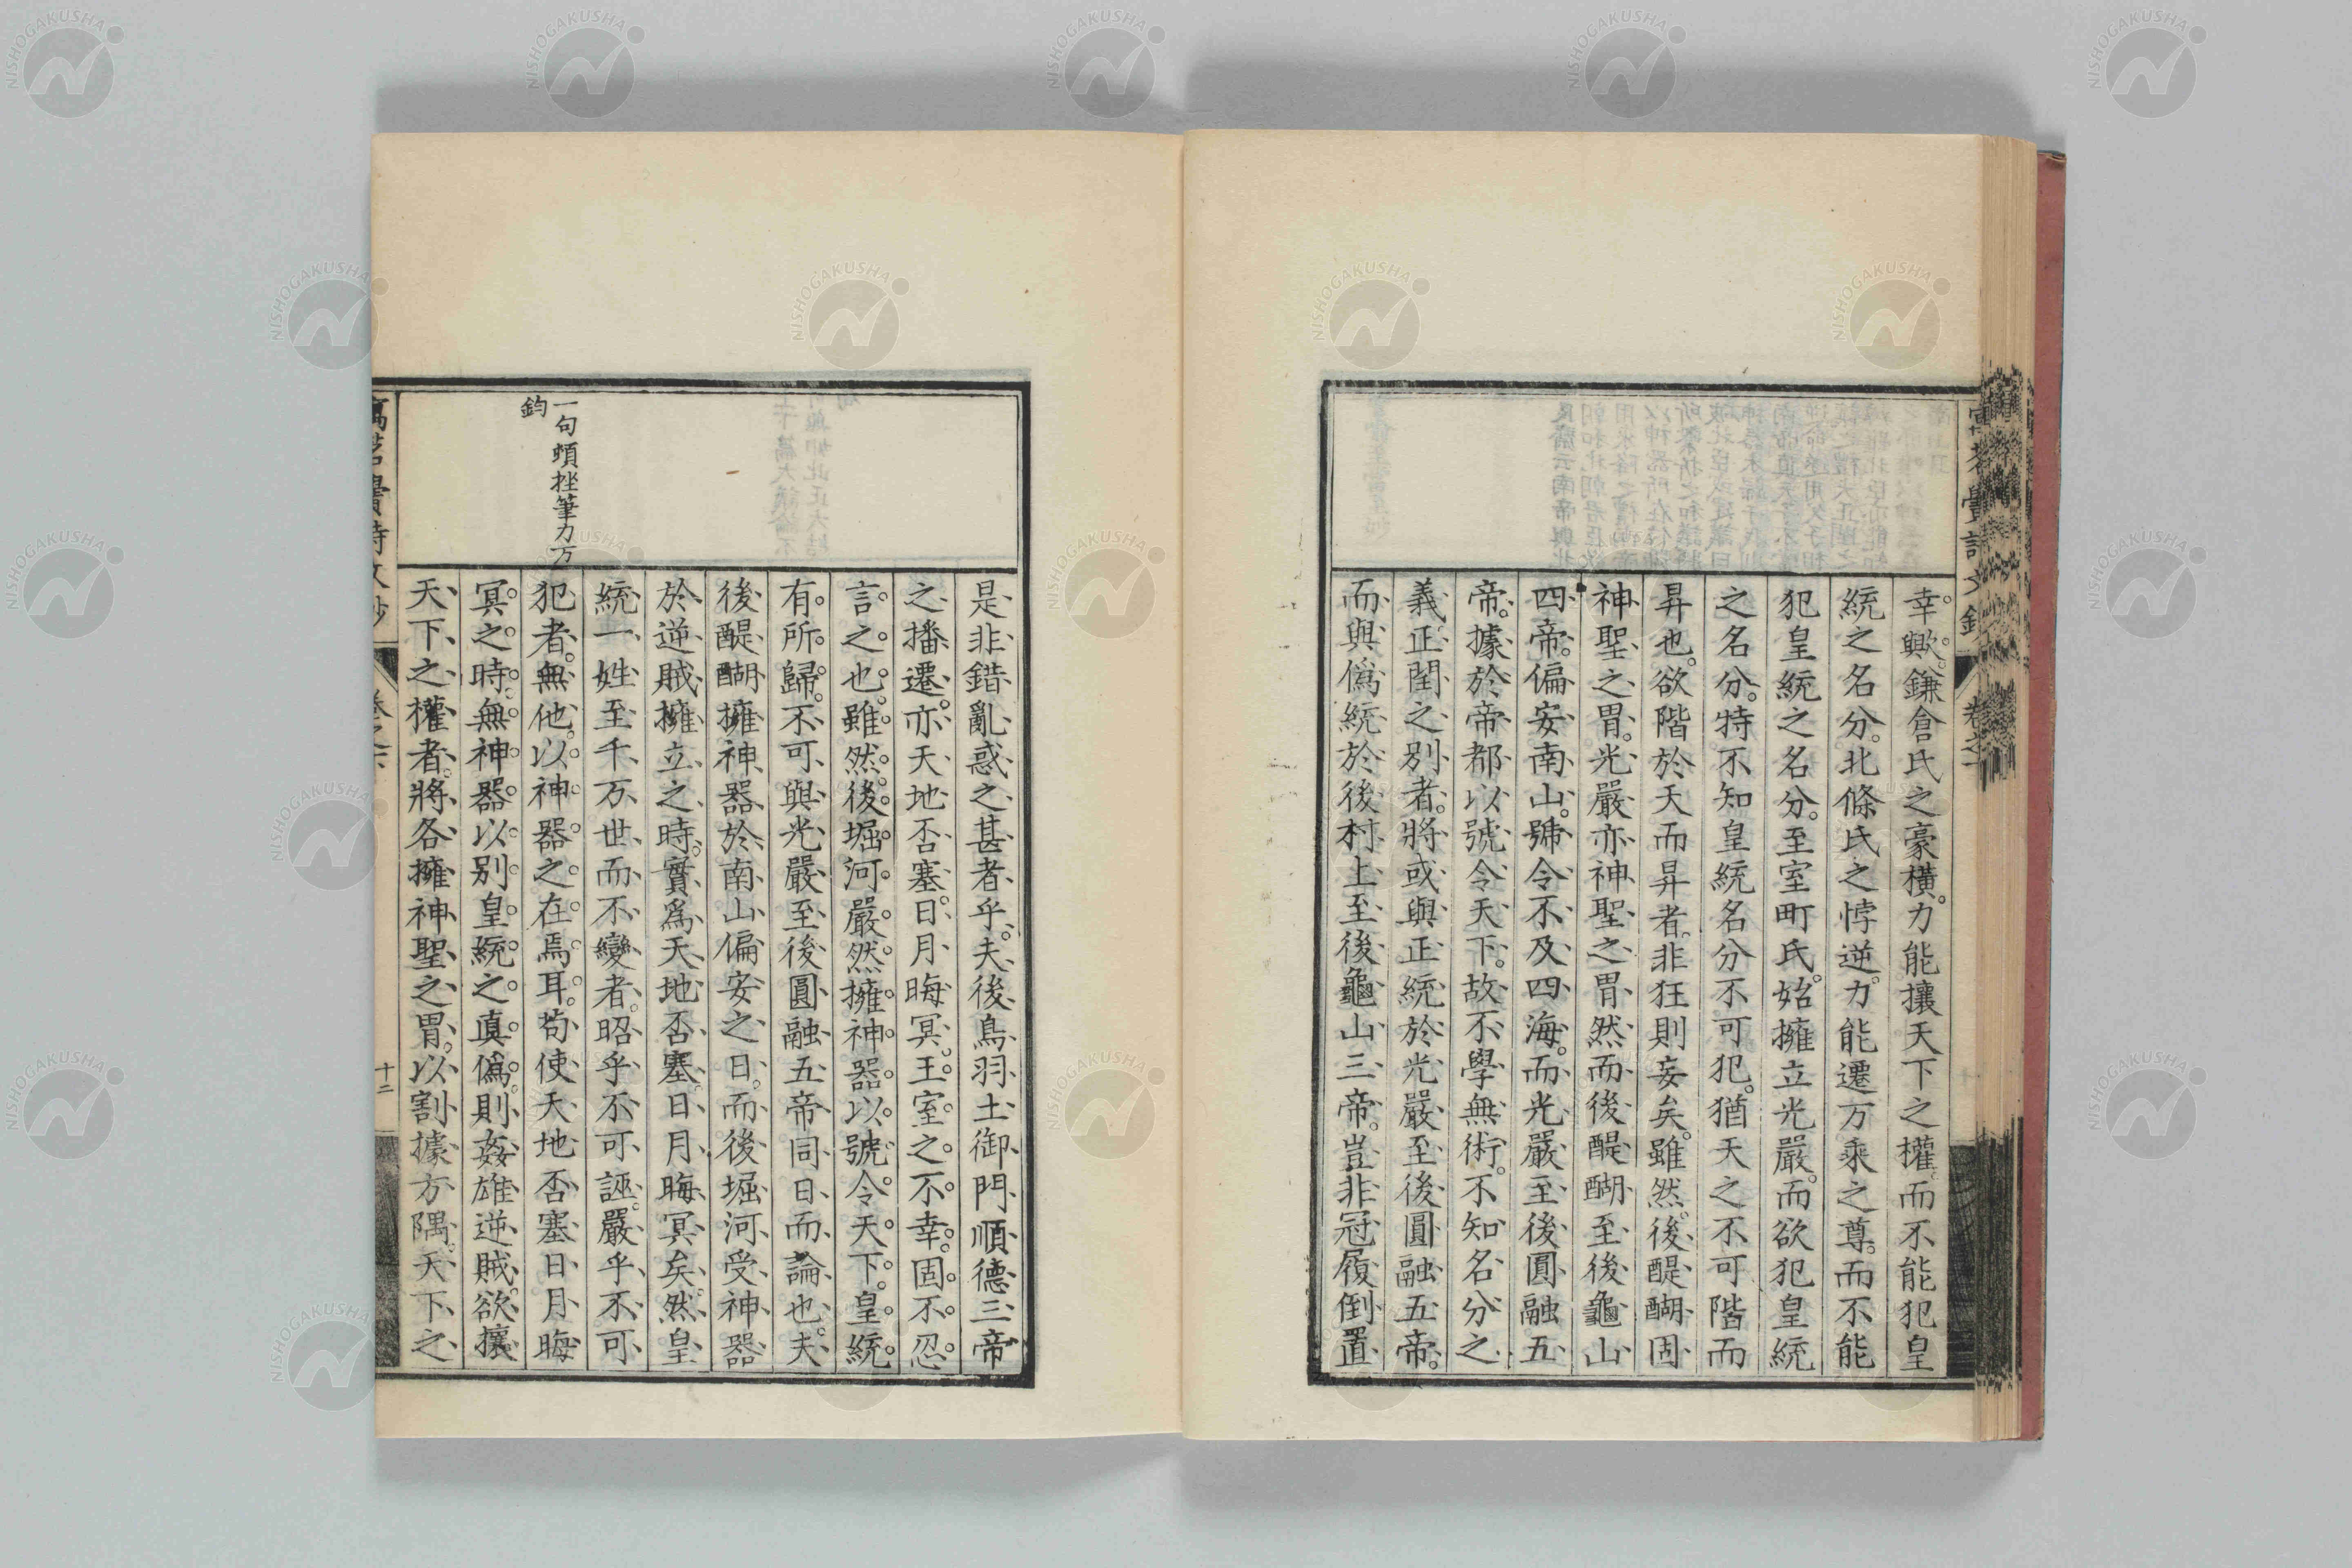 幸歟。鎌倉氏之豪横。力能攘天下之權。而不能犯皇
統之名分。北條氏之悖逆。力能遷万乘之尊。而不能
犯皇統之名分。至室町氏。始擁立光嚴。而欲犯皇統
之名分。特不知皇統名分不可犯。猶天之不可階而
昇也。欲階於天而昇者。非狂則妄矣。雖然。後醍醐固
神聖之胃。光嚴亦神聖之胃。然而後醍醐至後龜山
四帝。偏安南山。號令不及四海。而光嚴至後圓融五
帝。據於帝都以號令天下。故不學無術。不知名分之
義正閏之別者。將或與正統於光嚴至後圓融五帝。
而與僞統於後村上至後龜山三帝。豈非冠履倒置
一句頓挫筆力万
鈞
是非錯亂惑之甚者乎。夫後鳥羽土御門順德三帝
之播遷。亦天地否塞。日月晦冥。王室之不幸。固不忍
言之也。雖然後堀河嚴然擁神器以號令天下。皇統
有所歸。不可與光嚴至後圓融五帝同日而論也。夫
後醍醐擁神器於南山偏安之日。而後堀河受神器
於逆賊擁立之時。實爲天地否塞日月晦冥矣。然皇
統一姓至千万世而不變者。昭乎不可誣。嚴乎不可
犯者。無他。以神器之在焉耳。苟使天地否塞日月晦
冥之時。無神器以別皇統之眞僞。則姦雄逆賊。欲攘
天下之權者。將各擁神聖之胃。以割據方隅。天下之
十二
NISHOGAKUSHA